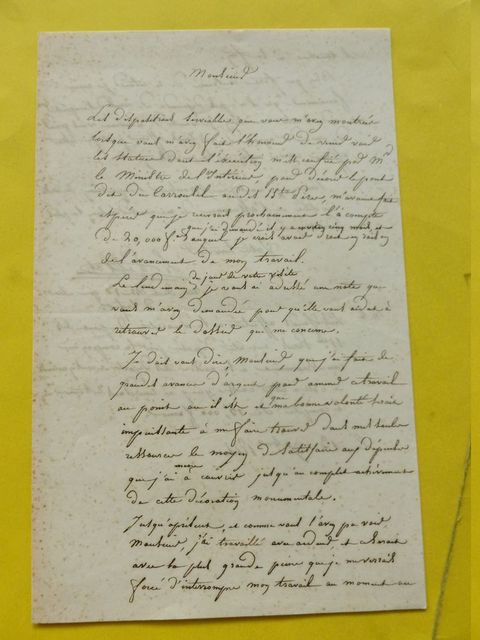 Monsieur
Les dispositions favorables que vous m'avez montrées
lorsque vous m'avez fait l'honneur de venir voir
les statues dont l'exécution m'est confiée par Mr
le Ministre de l'Intérieur, pour décorer le pont
dit du Carrousel ou des Sts Pères, m'avaient fait
espérer que je recevrais prochainement l'à compte
que j'ai demandé il y a environ cinq mois, et
de 20,000 f. auquel je crois avoir droit en raison
de l'avancement de mon travail.
Le lendemain du jour de votre visite
je vous ai adressé une note que
vous m'avez demandée pour qu'elle vous aidât à
retrouver le dossier qui me concerne.
Je dois vous dire Monsieur, que j'ai fait de
grandes avances d'argent pour amener ce travail
au point où il est, et que ma bonne volonté serait
impuissante à me faire trouver dans mes seules
ressources le moyen de satisfaire aux dépenses
que j'ai à couvrir jusqu'au complet achèvement
de cette décoration monumentale.
Jusqu'à présent, et comme vous l'avez pu voir,
Monsieur, j'ai travaillé avec ardeur, et ce serait
avec la plus grande peine que je me verrais
forcé d'interrompre mon travail au moment où